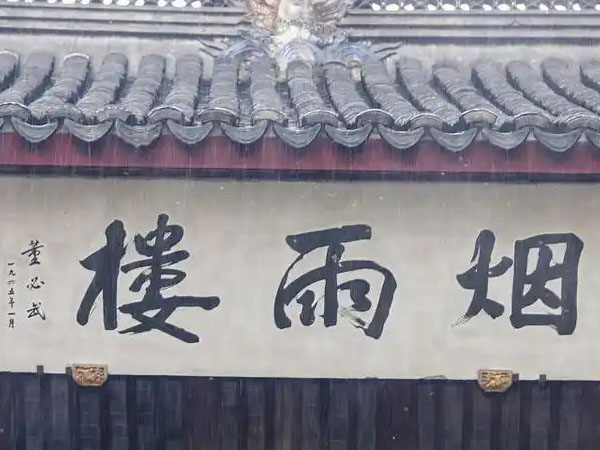 烟雨楼
董必武
一九六五年一月